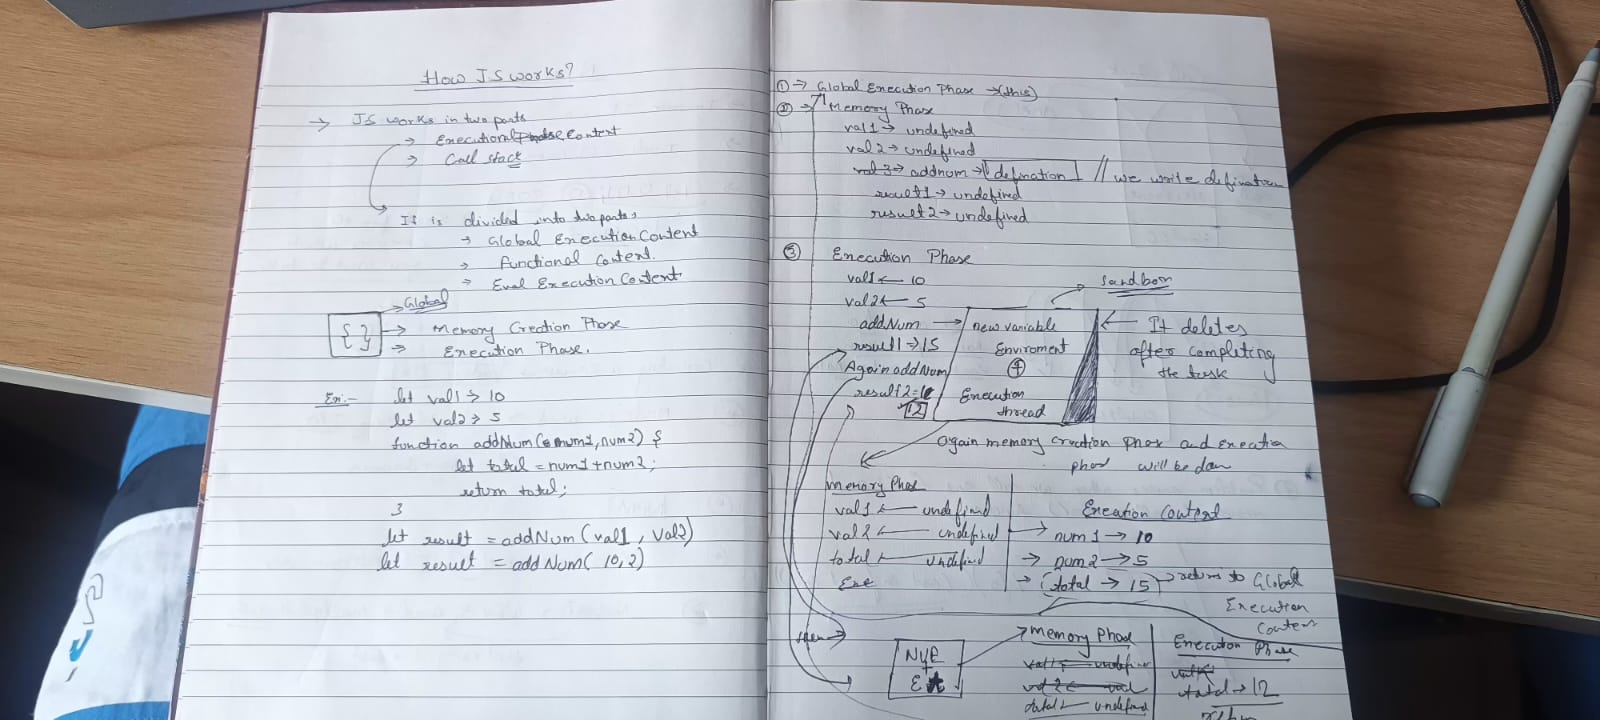 How JS works?
→ JS works in two parts
→ Executional Context
→ Call stack
It is divided into two parts,
→ Global Execution Content
→ Functional Content.
→ Eval Execution Content
→ Global
{ } → Memory Creation Phase
→ Execution Phase.
Ex:- let val1 → 10
let val2 → 5
function addNum(num1, num2) {
let total = num1 + num2;
return total;
}
let result = addNum(val1, val2)
let result = addNum(10, 2)
① → Global Execution Phase → (this)
② → Memory Phase
val1 → undefined
val2 → undefined
val3 → addnum → defination // we write defination
result1 → undefined
result2 → undefined
③ Execution Phase
val1 ← 10
val2 ← 5
Sandbox
addNum → new variable Enviroment
④
Execution thread
← It deletes
after completing
the task
result1 → 15
Again addNum
result2 = 12
again memory creation phase and execution
phase will be
Memory Phase
val1 ← undefined
val2 ← undefined
total ← undefined
Exe
Execution Context
→ num1 → 10
→ num2 → 5
→ (total → 15) → return to Global
Execution
Context
NVE
+
E
→ Memory Phase
val1
val2 ← val
total ← undefined
Execution Phase
total → 12